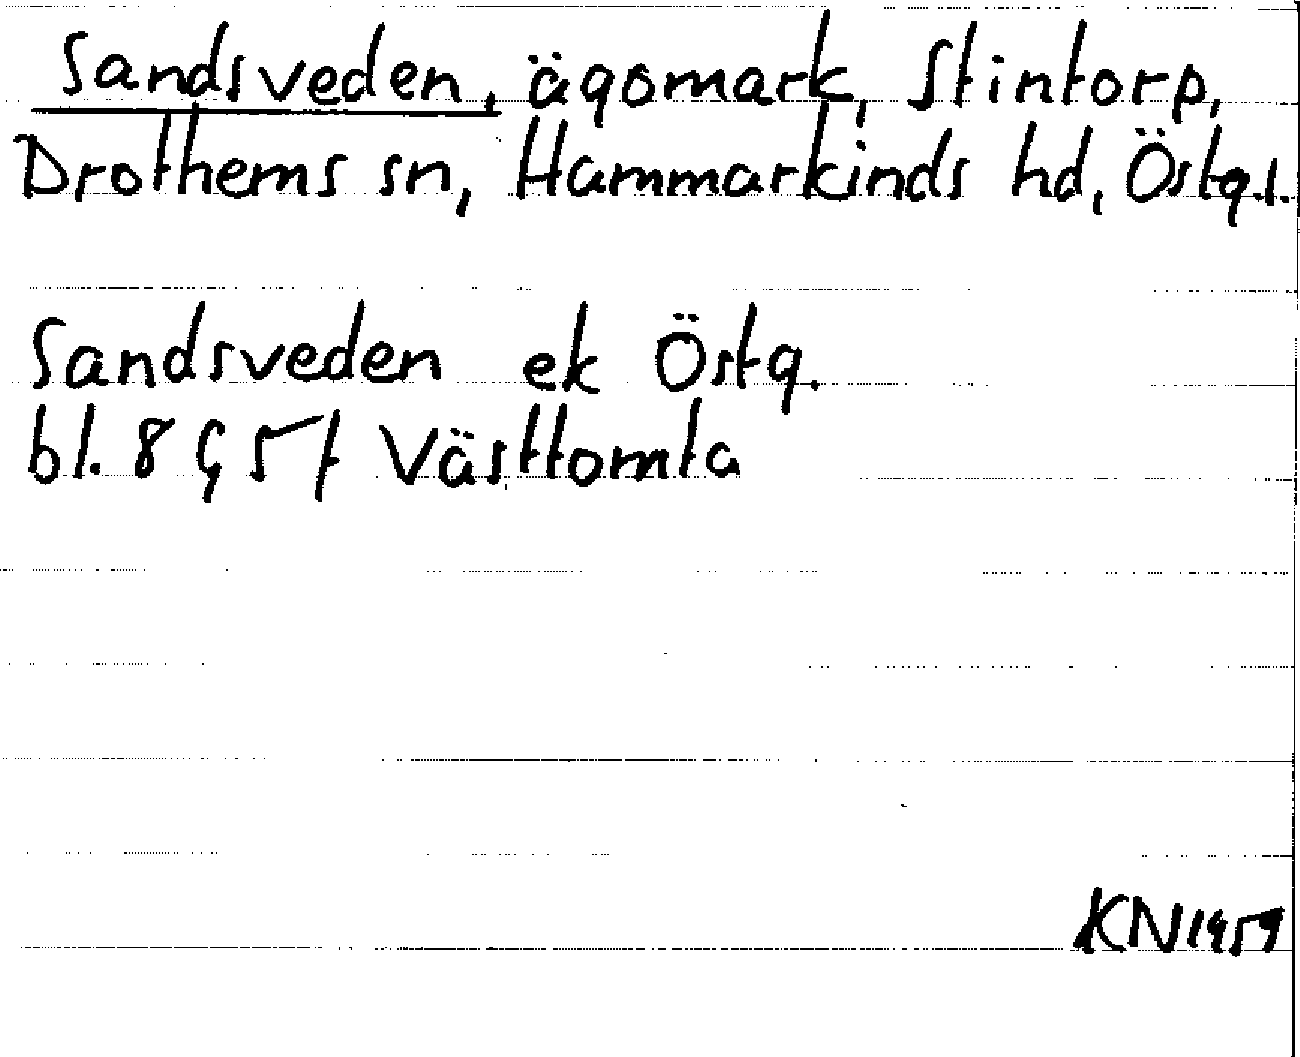 Sandsveden, ägomark, Stintorp,
Drothems sn, Hammarkinds hd, Östg.l.
Sandsveden ek Östg.
bl. 8 G 5f Västtomta
KN 1959